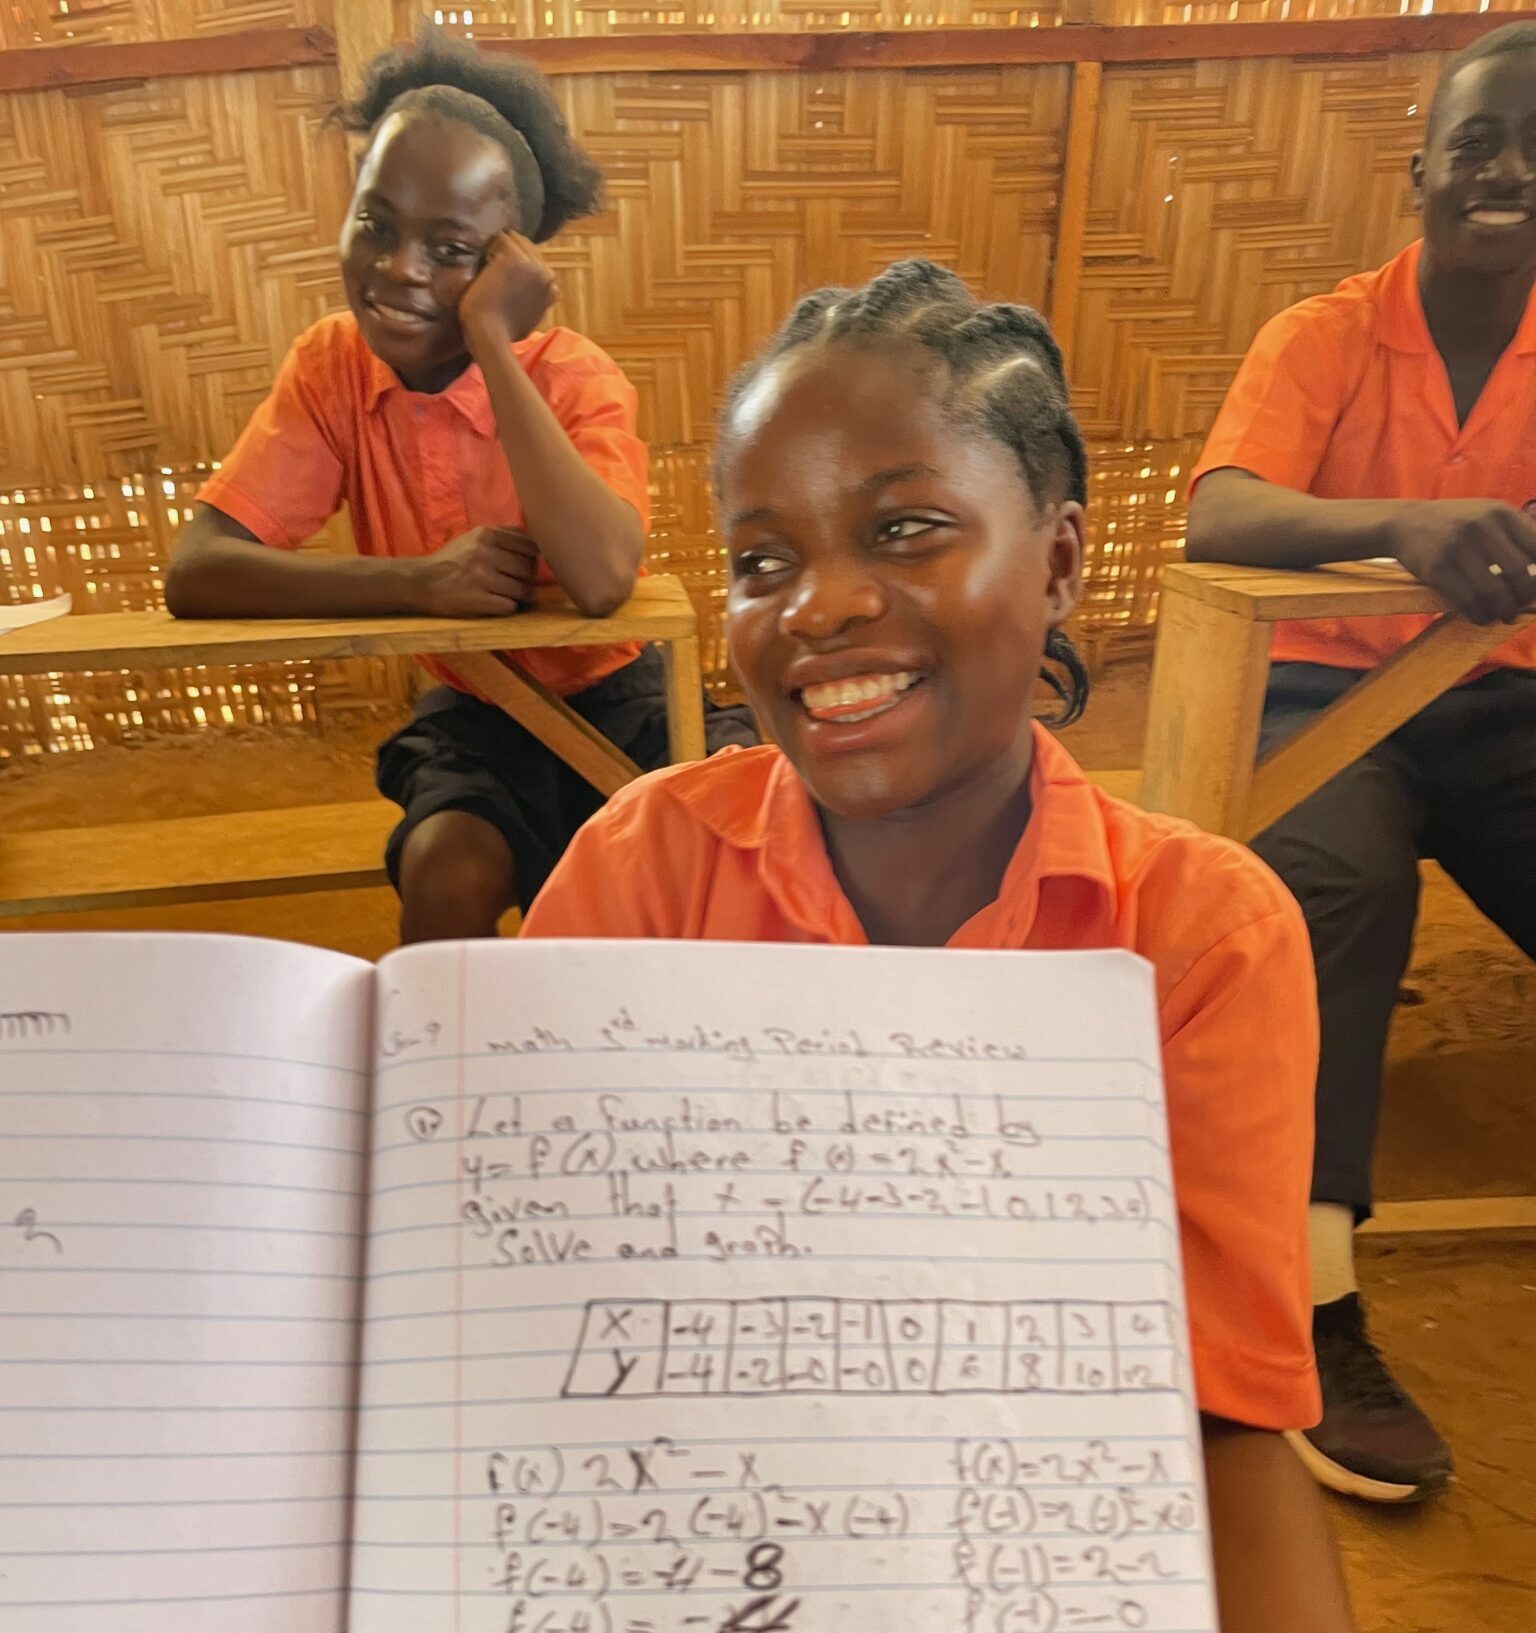 math 3rd marking Period Review
Let a function be defined by
y = f(x), where f(x) = 2x² - x.
given that x = (-4 -3 -2, -1 0, 1 2, 3, 4)
Solve and graph.
X -4 -3 -2 -1 0 1 2 3 4
Y -4 -2 -0 -0 0 6 8 10 12
f(x) 2x² - x f(x) = 2x² - x
f(-4) = 2(-4)² - x(-4) f(-1) = 2(-1)²
f(-4) = -4 - 8 f(-1) = 2 - 2
f(-4) = - f(-1) = -0